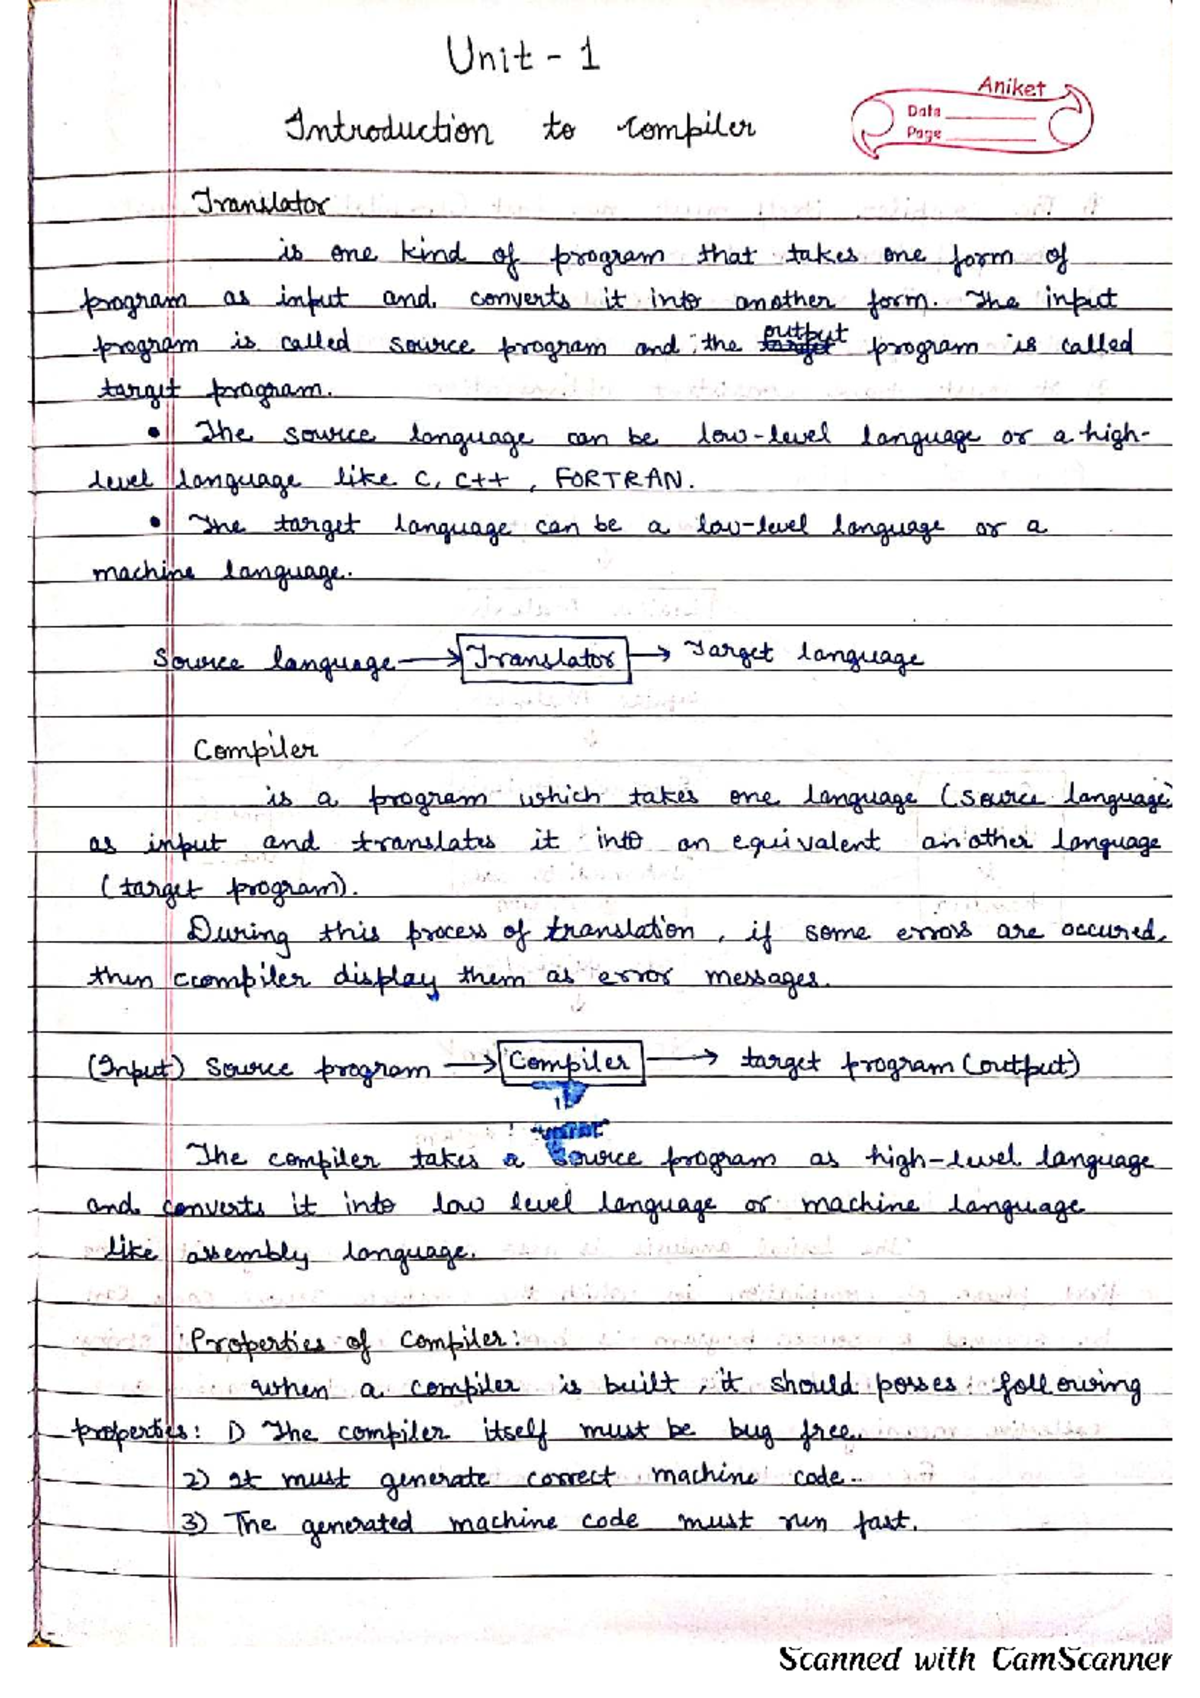 Unit - 1
Aniket
Introduction to compiler
Data
Page
Translator
is one kind of program that takes one form of
program as input and converts it into another form. The input
program is called source program and the output program is called
target program.
• The source language can be low-level language or a high-
level language like C, C++, FORTRAN.
• The target language can be a low-level language or a
machine language.
Source language → Translator → Target language
Compiler
is a program which takes one language (source language)
as input and translates it into an equivalent another language
(target program).
During this process of translation, if some errors are occured,
then ccompiler display them as error messages.
(Input) Source program → Compiler → target program (output)
The compiler takes a source program as high-level language
and converts it into low level language or machine language
like assembly language.
Properties of Compiler:
when a compiler is built, it should posses following
properties: 1) The compiler itself must be bug free.
2) It must generate correct machine code.
3) The generated machine code must run fast.
Scanned with CamScanner